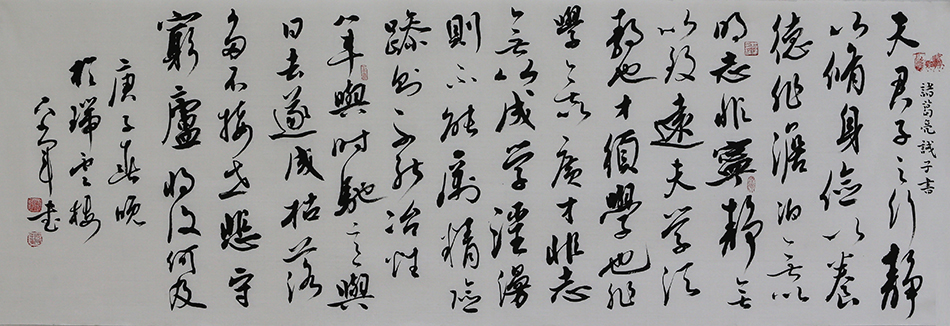 諸葛亮誡子書
夫君子之行静
以脩身儉以養
德非澹泊無以
明志非寧静無
以致遠夫学須
静也才須學也非
學無以廣才非志
無以成学淫漫
則不能勵精險
躁則不能冶性
年與時馳意與
日去遂成枯落
多不接世悲守
窮廬將復何及
庚子春晚
於瑞雲樓
書